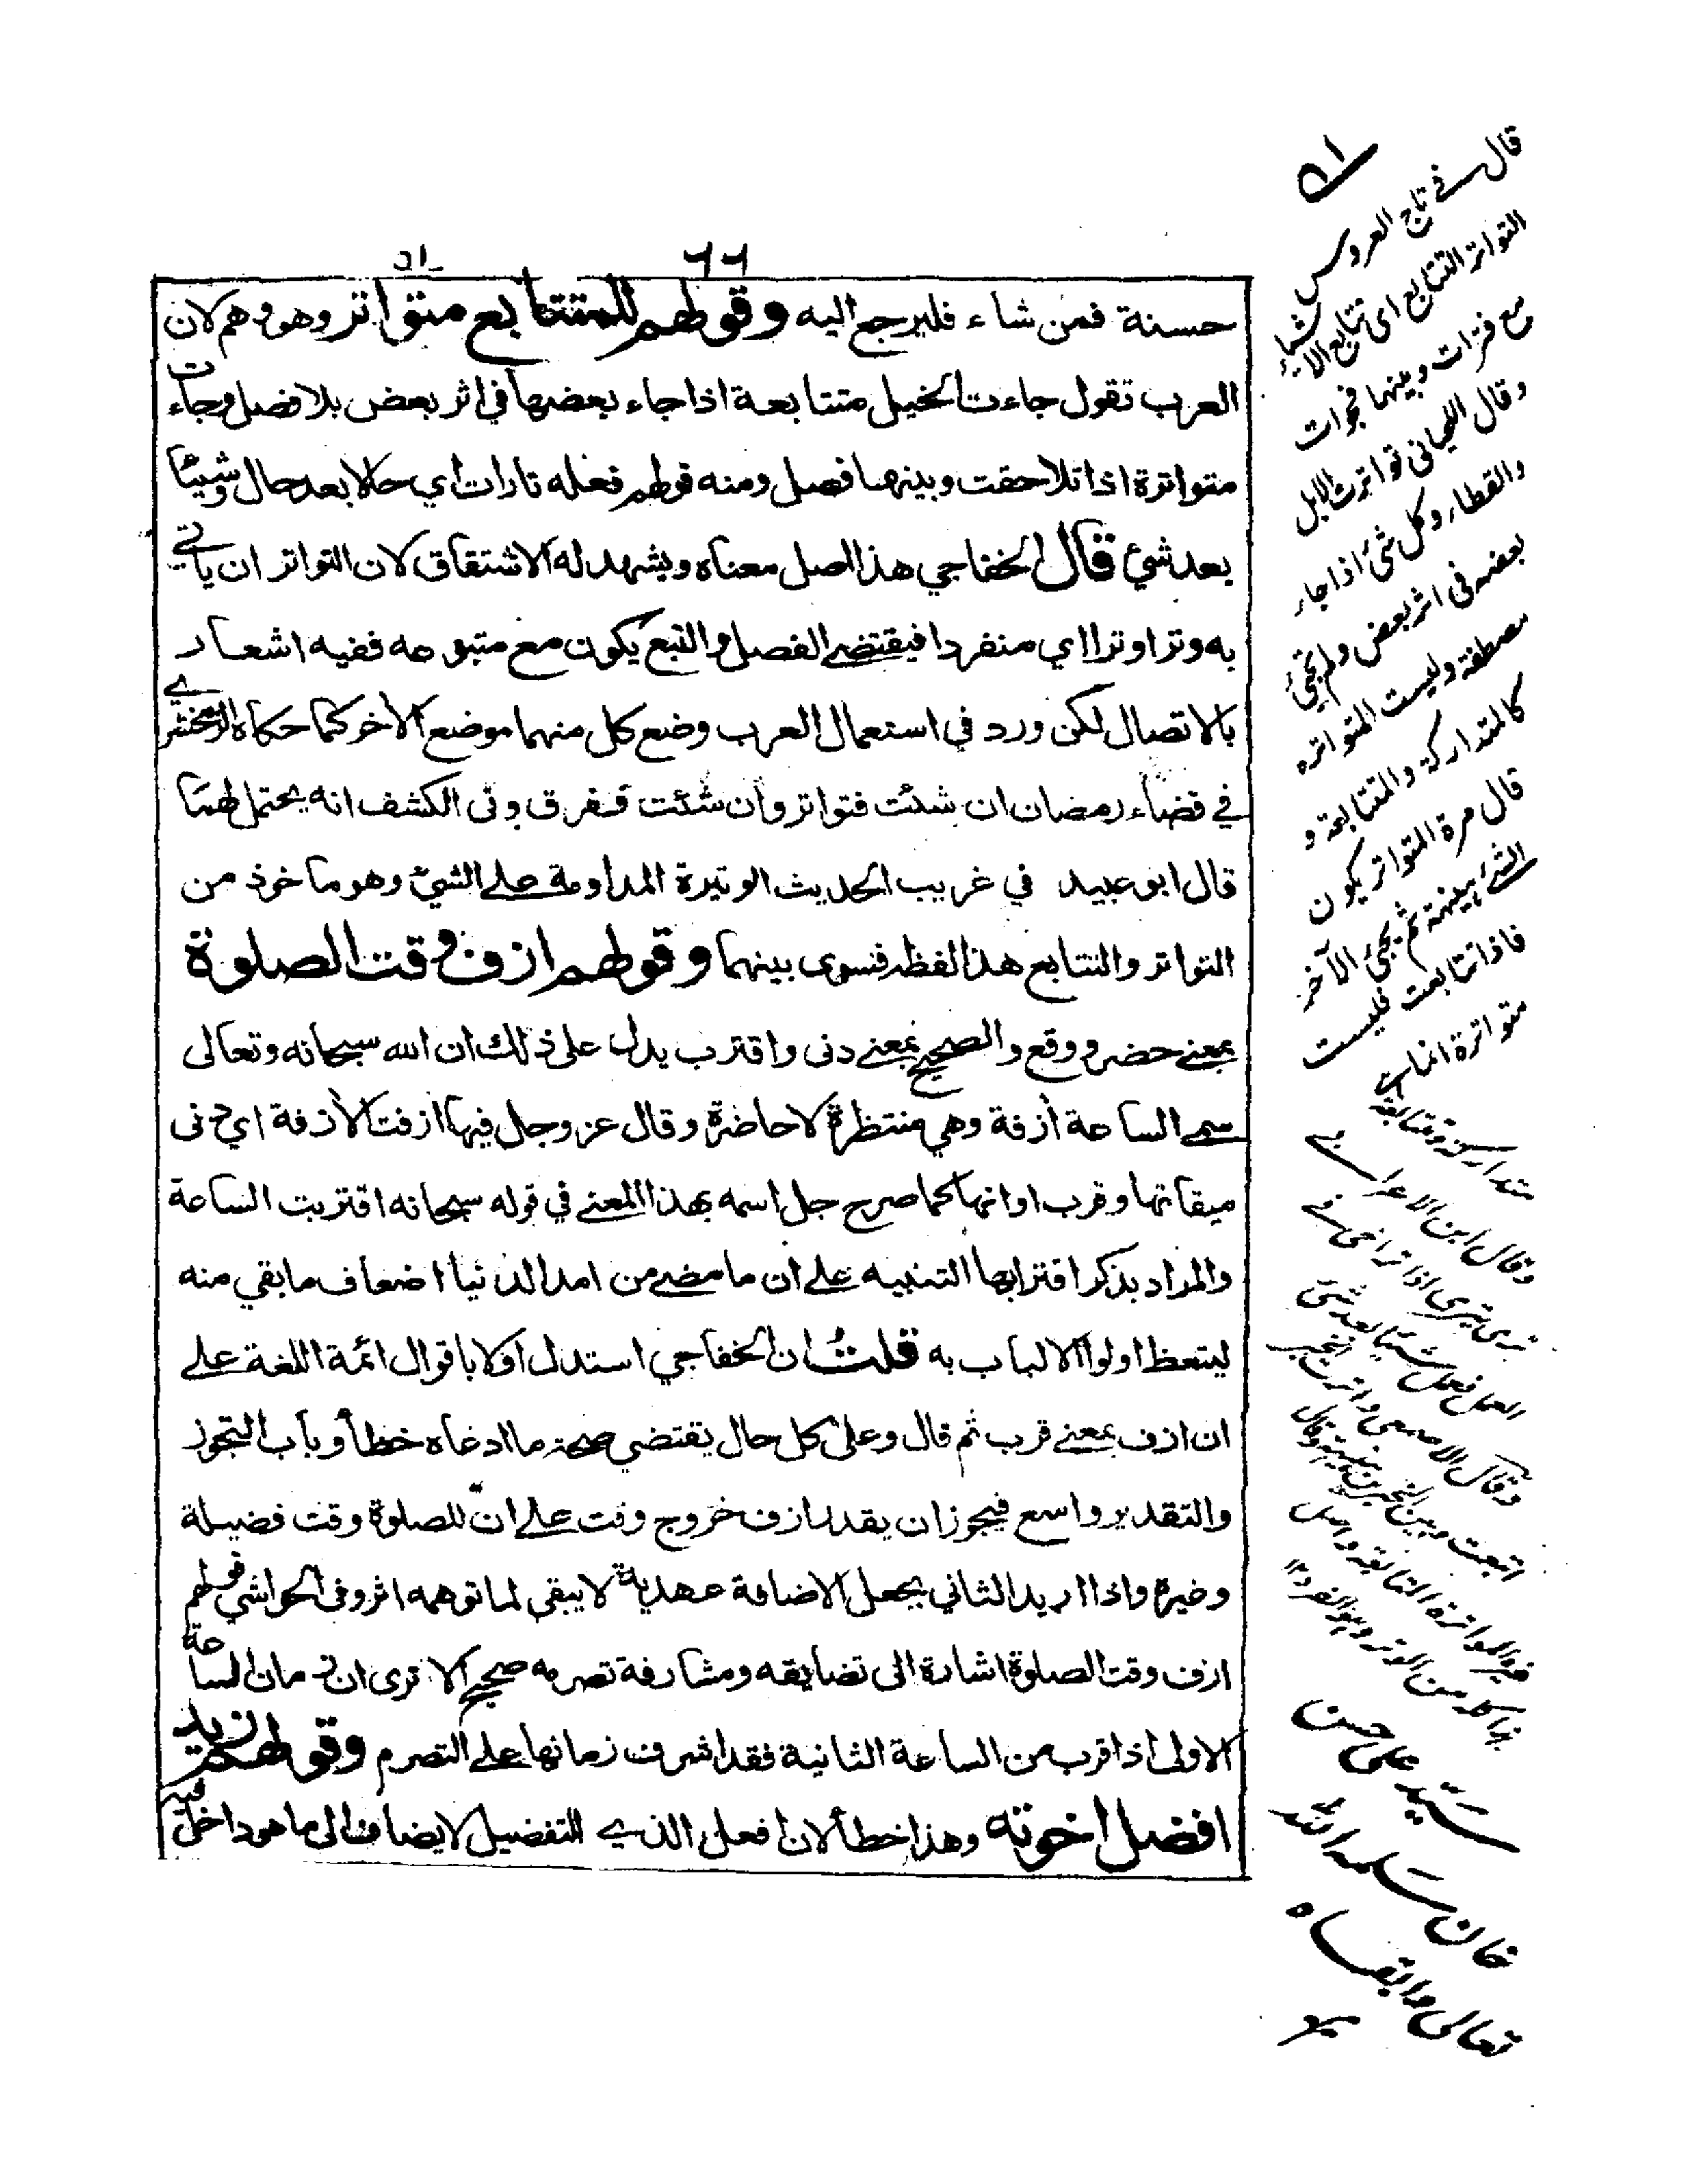 ٦٦
٥١
حسنة فمن شاء فليرجع اليه وقولهم للمتتابع متواتر وهو وهم لان
العرب تقول جاءت الخيل متتابعة اذا جاء بعضها في اثر بعض بلا فصل وجاءت
متواترة اذا تلاحقت وبينهما فصل ومنه قولهم فعله تارات اي حالا بعد حال وشيئا
بعد شيئ قال الخفاجي هذا اصل معناه ويشهد له الاشتقاق لان التواتر ان ياتي
به وترا وترا اي منفردا فيقتضي الفصل والتبع يكون مع متبوعه ففيه اشعار
بالاتصال لكن ورد في استعمال العرب وضع كل منهما موضع الاخر كما حكاه الزمخشري
في قضاء رمضان ان شئت فتواتر وان شئت ففرق وفى الكشف انه يحتملهما
قال ابو عبيد في غريب الحديث الوتيرة المداومة علے الشيئ وهو ماخوذ من
التواتر والتتابع هذا لفظه فسوى بينهما وقولهم ازف وقت الصلوة
بمعنے حضر ووقع والصحيح بمعنے دنى واقترب يدل على ذلك ان الله سبحانه وتعالى
سمے الساعة أزفة وهي منتظرة لا حاضرة وقال عز وجل فيها ازفت الأزفة اي دنى
ميقاتها وقرب اوانها كما صرح جل اسمه بهذا المعنے في قوله سبحانه اقتربت الساعة
والمراد بذكر اقترابها التنبيه علے ان ما مضے من امد الدنيا اضعاف ما بقي منه
ليتعظ اولوا الالباب به قلت ان الخفاجي استدل اولا باقوال ائمة اللغة علے
ان ازف بمعنے قرب ثم قال وعلى كل حال يقتضي صحة ما ادعاه خطأ وباب التجوز
والتقدير واسع فيجوز ان يقدر ازف خروج وقت علے ان للصلوة وقت فضيلة
وغيره واذا اريد الثاني بجعل الاضافة عهدية لا يبقى لما توهمه اثر وفى الحواشي قولهم
ازف وقت الصلوة اشارة الى تضايقه ومشارفة تصرمه صحيح الا ترى ان زمان الساعة
الاولى اذا قرب من الساعة الثانية فقد اشرف زمانها علے التصرم وقولهم زيد
افضل اخوته وهذا خطأ لان افعل الذي للتفضيل لا يضاف الى ما هو داخل فيه
٥١
قال في تاج العروس
التواتر التتابع اى تتابع الاشياء
مع فترات وبينهما فجوات
وقال اللحيانى تواترت الابل
والقطا وكل شئ اذا جاء
بعضه فى اثر بعض ولم تجئ
مصطفة وليست المتواترة
كالمتداركة والمتتابعة و
قال مرة المتواتر يكون
الشئ هنيهة ثم يجئ الآخر
فاذا تتابعت فليست
متواترة انما هى
متداركة ومتتابعة
وقال ابن الاعرابى
ترى يترى اذا تراخى فے
العمل فعمل شيئا بعد شئ
وقال الاصمعى واترت الخبر
اتبعت وبين الخبرين هنيهة وقال
غيره المواترة المتابعة واصل
هذا كله من الوتر وهو الفرد ١٢
سيد على حسن
خان سلمه الله
تعالى وابقاه